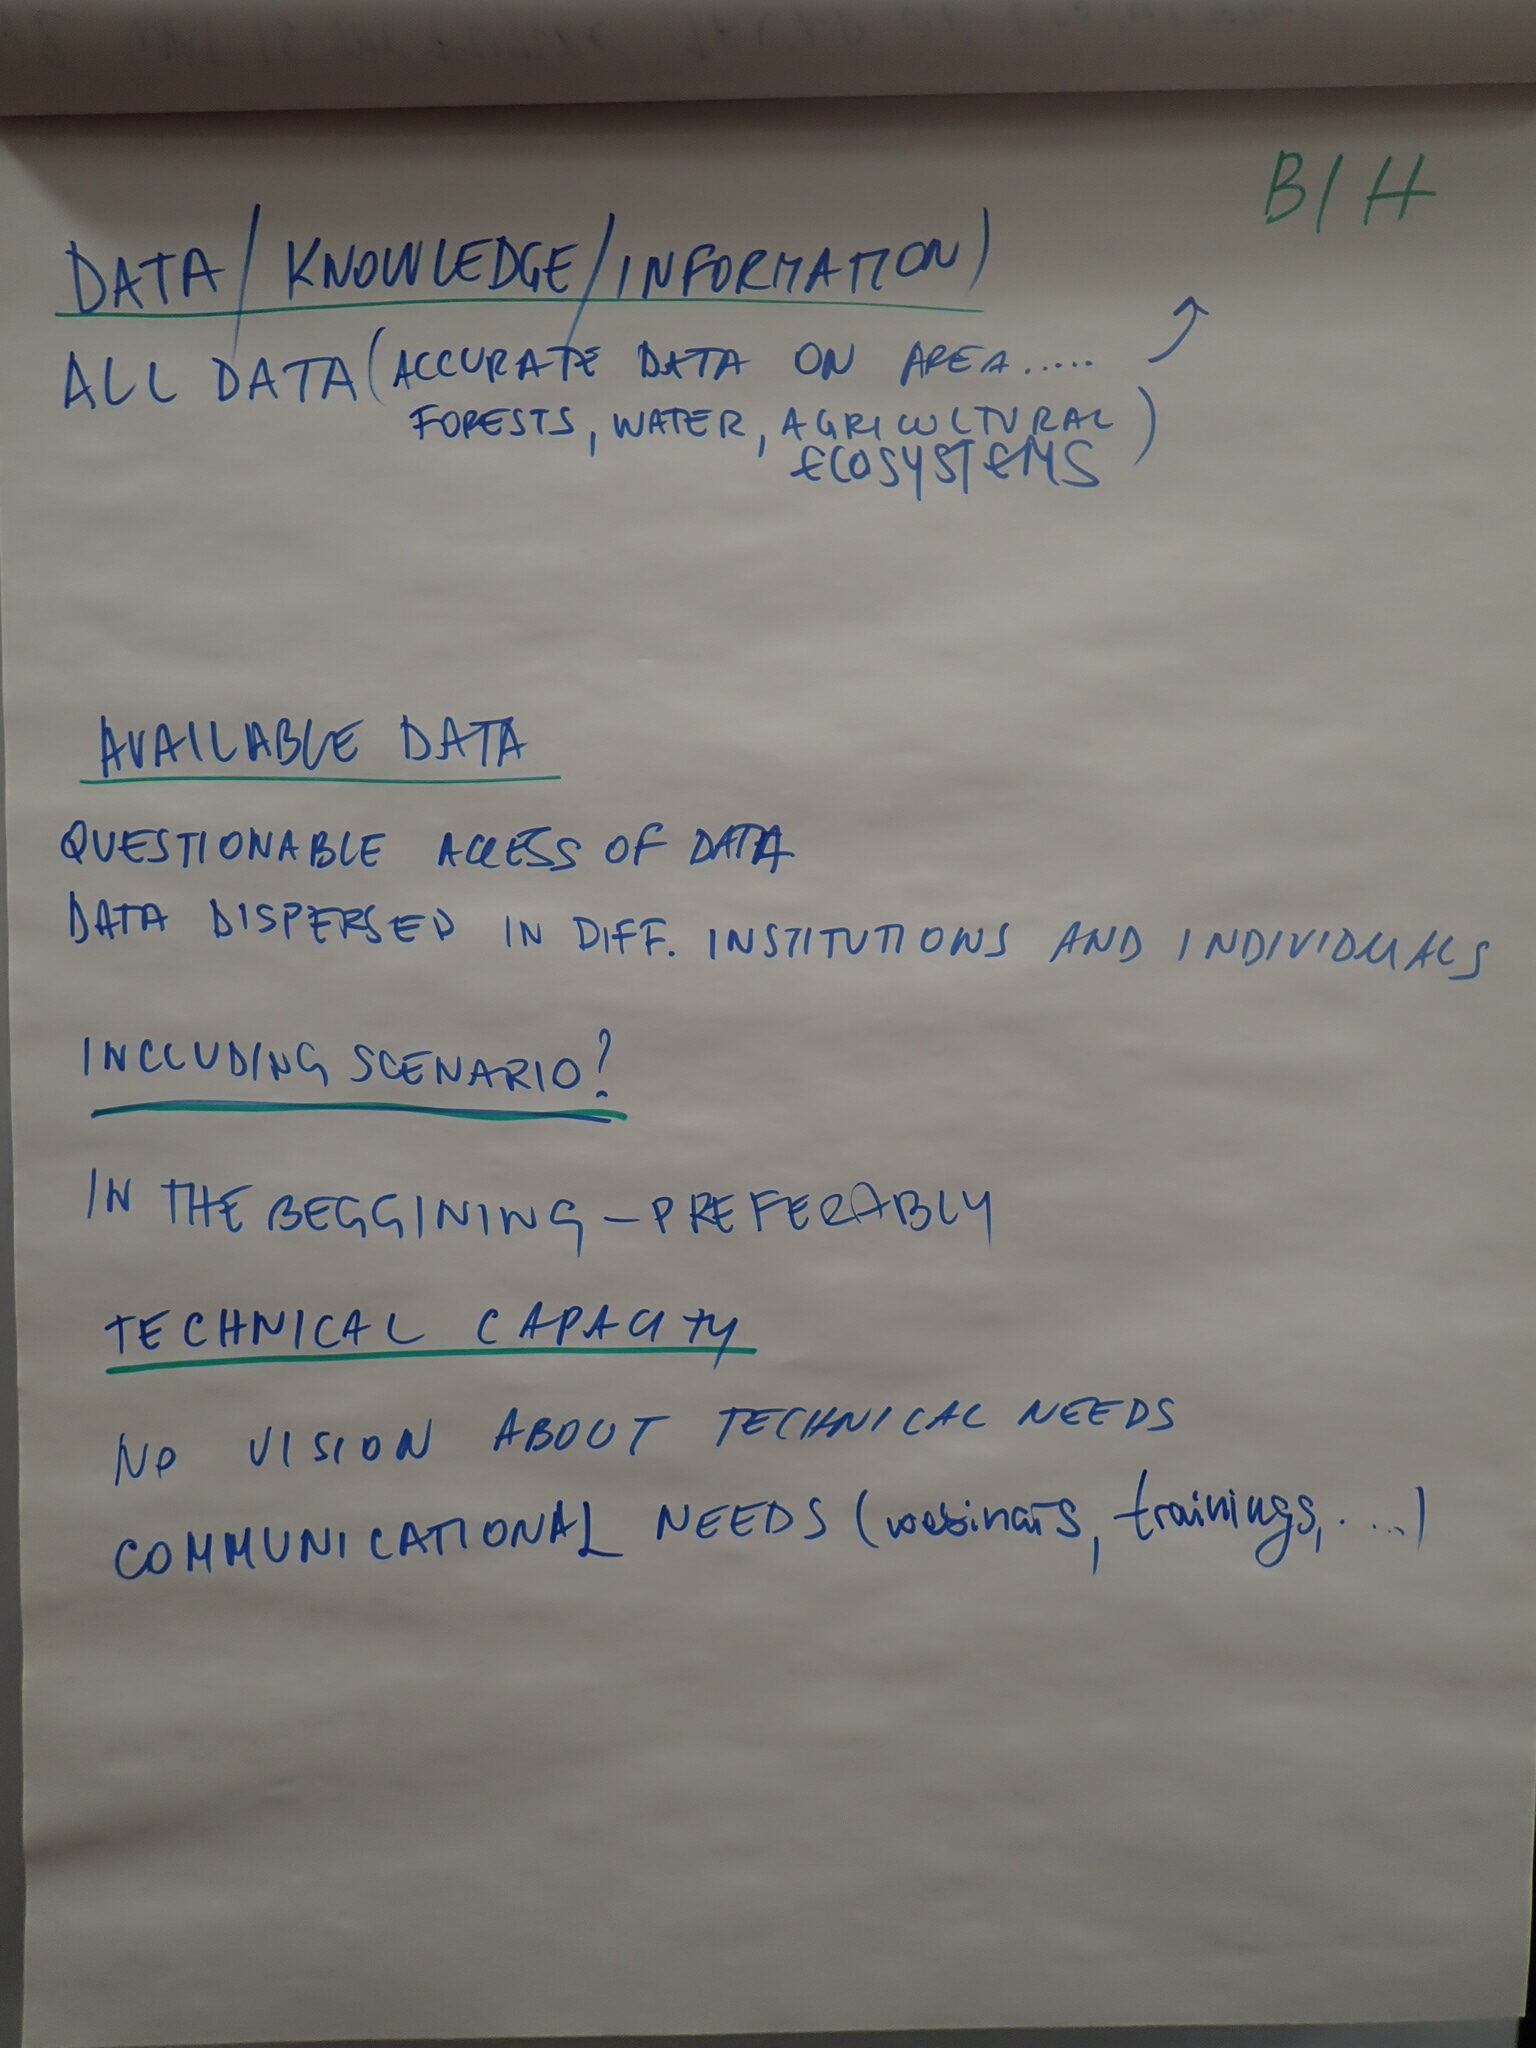 BIH
DATA/KNOWLEDGE/INFORMATION)
ALL DATA (ACCURATE DATA ON AREA.....
FORESTS, WATER, AGRICULTURAL
ECOSYSTEMS)
AVAILABLE DATA
QUESTIONABLE ACCESS OF DATA
DATA DISPERSED IN DIFF. INSTITUTIONS AND INDIVIDUALS
INCLUDING SCENARIO?
IN THE BEGGINING – PREFERABLY
TECHNICAL CAPACITY
NO VISION ABOUT TECHNICAL NEEDS
COMMUNICATIONAL NEEDS (webinars, trainings, ....)